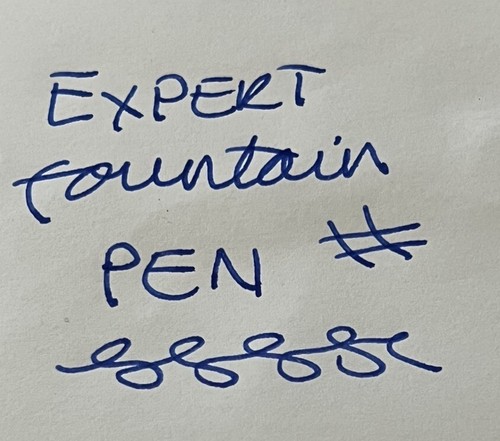 EXPERT
fountain
PEN #